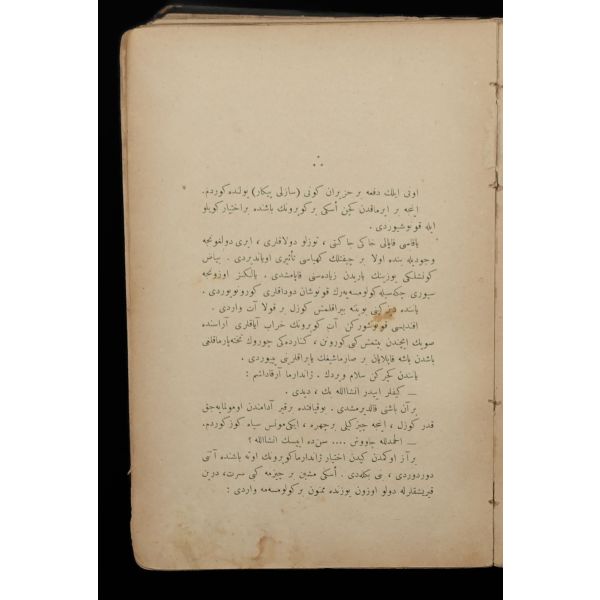 اونی ایلك دفعه بر حزیران كونی (سازلی پیكار) یولنده كوردم.
اینجه بر ایرماقدن كچن أسكی بر كوپرونك باشنده بر اختیار كویلو
ایله قونوشیوردی .
یاقاسی قاپالی خاكی جاكتی ، توزلو دولاقلری ، ایری دولغونجه
وجودیله بنده اولا بر چفتلك كهیاسی تأثیری اویاندیردی . بیاض
كونشلكی یوزینك یاریدن زیاده‌سنی قاپامشدی . یالكز اوزونجه
سیوری چكه‌سیله كولومسه‌یه‌رك قونوشان دوداقلری كورونویوردی .
یاننده دیزكینی بوینه بیراقلمش كوزل بر قولا آت واردی .
افندیسی قونوشوركن آت كوپرونك خراب آیاقلری آراسنده
صویك ایچندن بیتمش كبی كورونن ، كنارده‌كی چوروك تخته پارماقلغی
باشدن باشه قاپلایان بر صارماشیغك یاپراقلرینی ییوردی .
یانندن كچركن سلام ویردك . ژاندارما آرقداشم :
— كیفلر اییدر انشاالله بك ، دیدی .
بر آن باشی قالدیرمشدی . بو قیافتده بر قیر آدامندن اومولمایه‌جق
قدر كوزل ، اینجه چیزكیلی بر چهره ، ایكی مونس سیاه كوز كوردم.
— الحمدلله جاووش .... سن ده اییسك انشاالله ؟
بر آز اوكمدن كیدن اختیار ژاندارما كوپرونك اوته باشنده آتنی
دوردوردی ، بنی بكله‌دی . أسكی مشین بر چیزمه كبی سرت، درین
قیریشقلرله دولو اوزون یوزنده ممنون بر كولومسه‌مه واردی :